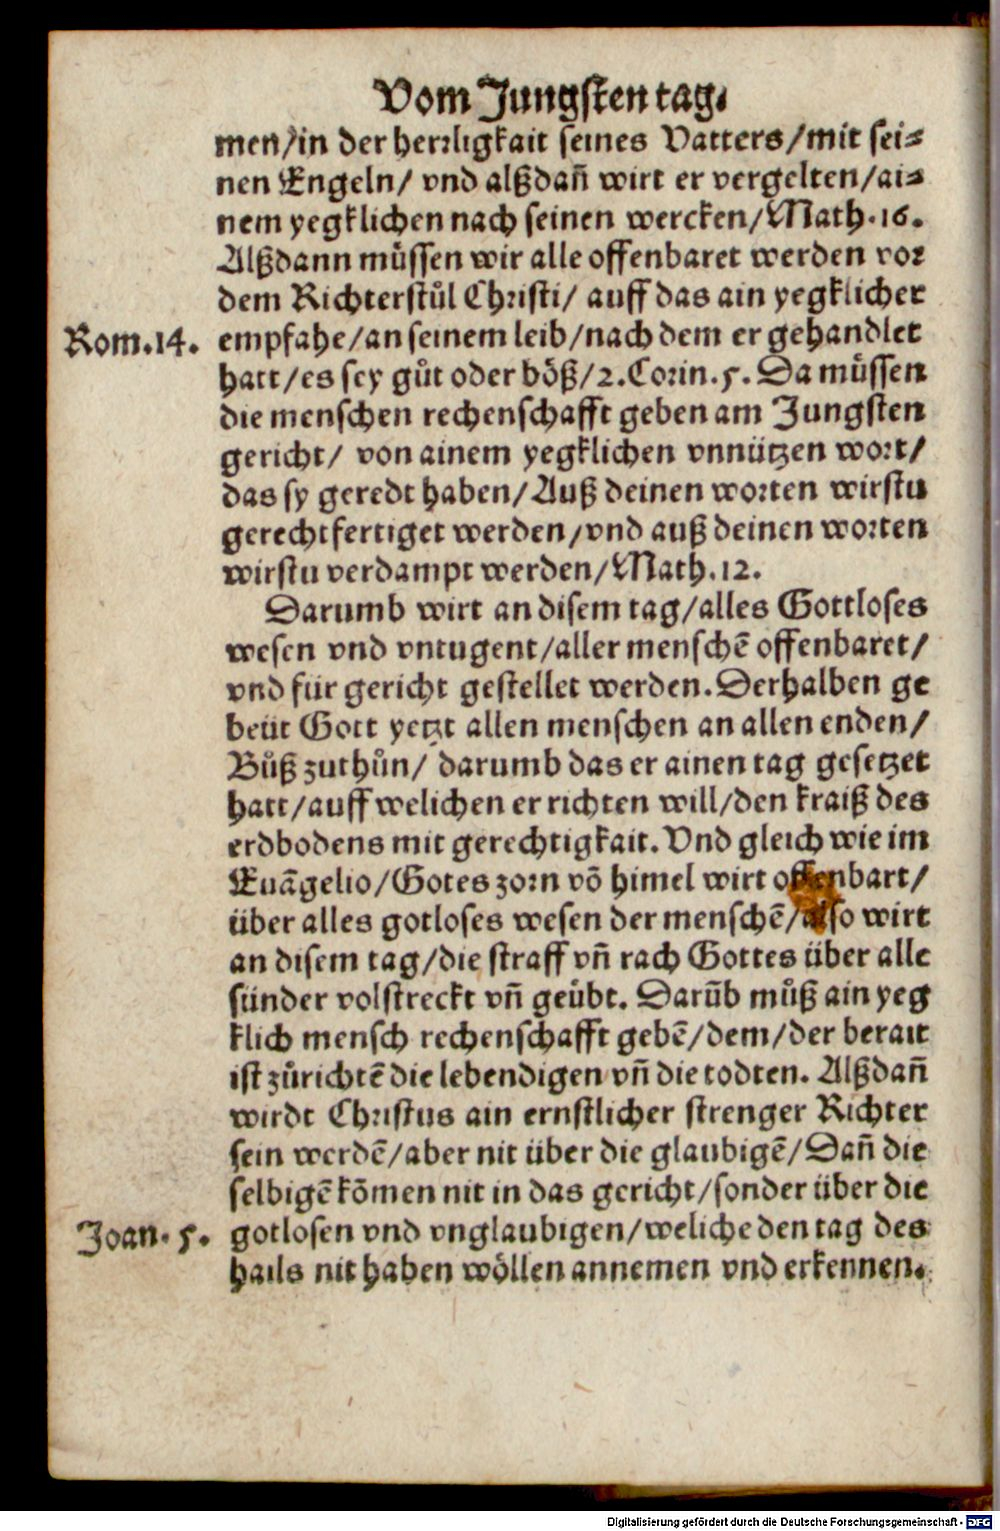 Vom Jungsten tag.
men/in der herꝛligkait seines Vatters/mit sei⸗
nen Engeln/ vnd alßdañ wirt er vergelten/ai⸗
nem yegklichen nach seinen wercken/Math.16.
Alßdann muͤssen wir alle offenbaret werden voꝛ
dem Richterstuͤl Chꝛisti/ auff das ain yegklicher
Rom.14. empfahe/an seinem leib/nach dem er gehandlet
hatt/es sey guͦt oder boͤß/2.Coꝛin.5. Da muͤssen
die menschen rechenschafft geben am Jungsten
gericht/ von ainem yegklichen vnnützen woꝛt/
das sy geredt haben/Auß deinen woꝛten wirstu
gerechtfertiget werden/vnd auß deinen woꝛten
wirstu verdampt werden/Math.12.
Darumb wirt an disem tag/alles Gottloses
wesen vnd vntugent/aller menschẽ offenbaret/
vnd für gericht gestellet werden. Derhalben ge
beüt Gott yetzt allen menschen an allen enden/
Buͦß zuthuͦn/ darumb das er ainen tag gesetzet
hatt/auff welichen er richten will/den kraiß des
erdbodens mit gerechtigkait. Vnd gleich wie im
Euãgelio/Gotes zoꝛn võ himel wirt offenbart/
über alles gotloses wesen der menschẽ/also wirt
an disem tag/die straff vñ rach Gottes über alle
sünder volstreckt vñ geuͤbt. Darũb muͦß ain yeg
klich mensch rechenschafft gebẽ/dem/der berait
ist zuͦrichtẽ die lebendigen vñ die todten. Alßdañ
wirdt Chꝛistus ain ernstlicher strenger Richter
sein werdẽ/aber nit über die glaubigẽ/Dañ die
selbigẽ kõmen nit in das gericht/sonder über die
Joan.5. gotlosen vnd vnglaubigen/weliche den tag des
hails nit haben woͤllen annemen vnd erkennen.
Digitalisierung gefördert durch die Deutsche Forschungsgemeinschaft - DFG